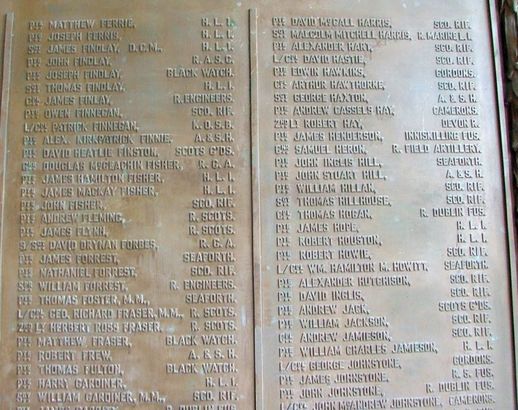 Pte MATTHEW FERRIE, H. L. I.
Pte JOSEPH FERRIS, H. L. I.
Sgt JAMES FINDLAY, D.C.M., H. L. I.
Pte JOHN FINDLAY, R. A. S. C.
Pte JOSEPH FINDLAY, BLACK WATCH.
Sgt THOMAS FINDLAY, H. L. I.
Cpl JAMES FINLAY, R. ENGINEERS.
Pte OWEN FINNEGAN, SCO. RIF.
L/Cpl PATRICK FINNEGAN, K. O. S. B.
Pte ALEX. KIRKPATRICK FINNIE, A. & S. H.
Pte DAVID HEATLIE FINSTON, SCOTS GDS.
Gnr DOUGLAS McGEACHIN FISHER, R. G. A.
Pte JAMES HAMILTON FISHER, H. L. I.
Pte JAMES MACKAY FISHER, H. L. I.
Pte JOHN FISHER, SCO. RIF.
Pte ANDREW FLEMING, R. SCOTS.
Pte JAMES FLYNN, R. SCOTS.
S/Sgt DAVID DRYMAN FORBES, R. G. A.
Pte JAMES FORREST, SEAFORTH.
Pte NATHANIEL FORREST, SCO. RIF.
WILLIAM FORREST, R. ENGINEERS.
Pte THOMAS FOSTER, M.M., SEAFORTH.
L/Cpl GEO. RICHARD FRASER, M.M., R. SCOTS.
2nd Lt HERBERT ROSS FRASER, R. SCOTS.
Pte MATTHEW FRASER, BLACK WATCH.
Pte ROBERT FREW, A. & S. H.
Pte THOMAS FULTON, BLACK WATCH.
Pte HARRY GARDINER, H. L. I.
Sgt WILLIAM GARDINER, M.M., SCO. RIF.
R. DUBLIN FUS.
Pte DAVID McCALL HARRIS, SCO. RIF.
Sgt MALCOLM MITCHELL HARRIS, R. MARINE L. I.
Pte ALEXANDER HART, SCO. RIF.
L/Cpl DAVID HASTIE, SCO. RIF.
Pte EDWIN HAWKINS, GORDONS.
Cpl ARTHUR HAWTHORNE, SCO. RIF.
Sgt GEORGE HAXTON, A. & S. H.
Pte ANDREW CASSELS HAY, CAMERONS.
2nd Lt ROBERT HAY, DEVON R.
Pte JAMES HENDERSON, INNISKILLING FUS.
Gnr SAMUEL HERON, R. FIELD ARTILLERY.
Pte JOHN INGLIS HILL, SEAFORTH.
Pte JOHN STUART HILL, A. & S. H.
Pte WILLIAM HILLAN, SCO. RIF.
Sgt THOMAS HILLHOUSE, SCO. RIF.
Cpl THOMAS HOGAN, R. DUBLIN FUS.
Pte JAMES HOPE, H. L. I.
Pte ROBERT HOUSTON, H. L. I.
Pte ROBERT HOWIE, SCO. RIF.
L/Cpl WM. HAMILTON M. HOWITT, SEAFORTH.
Pte ALEXANDER HUTCHISON, SCO. RIF.
Pte DAVID INGLIS, SCO. RIF.
Pte ANDREW JACK, SCOTS GDS.
Pte WILLIAM JACKSON, SCO. RIF.
Cpl ANDREW JAMIESON, SCO. RIF.
Pte WILLIAM CHARLES JAMIESON, H. L. I.
L/Cpl GEORGE JOHNSTONE, GORDONS.
Pte JAMES JOHNSTONE, R. S. FUS.
Pte JOHN JOHNSTONE, R. DUBLIN FUS.
L/Cpl JOHN McANDREW JOHNSTONE, CAMERONS.